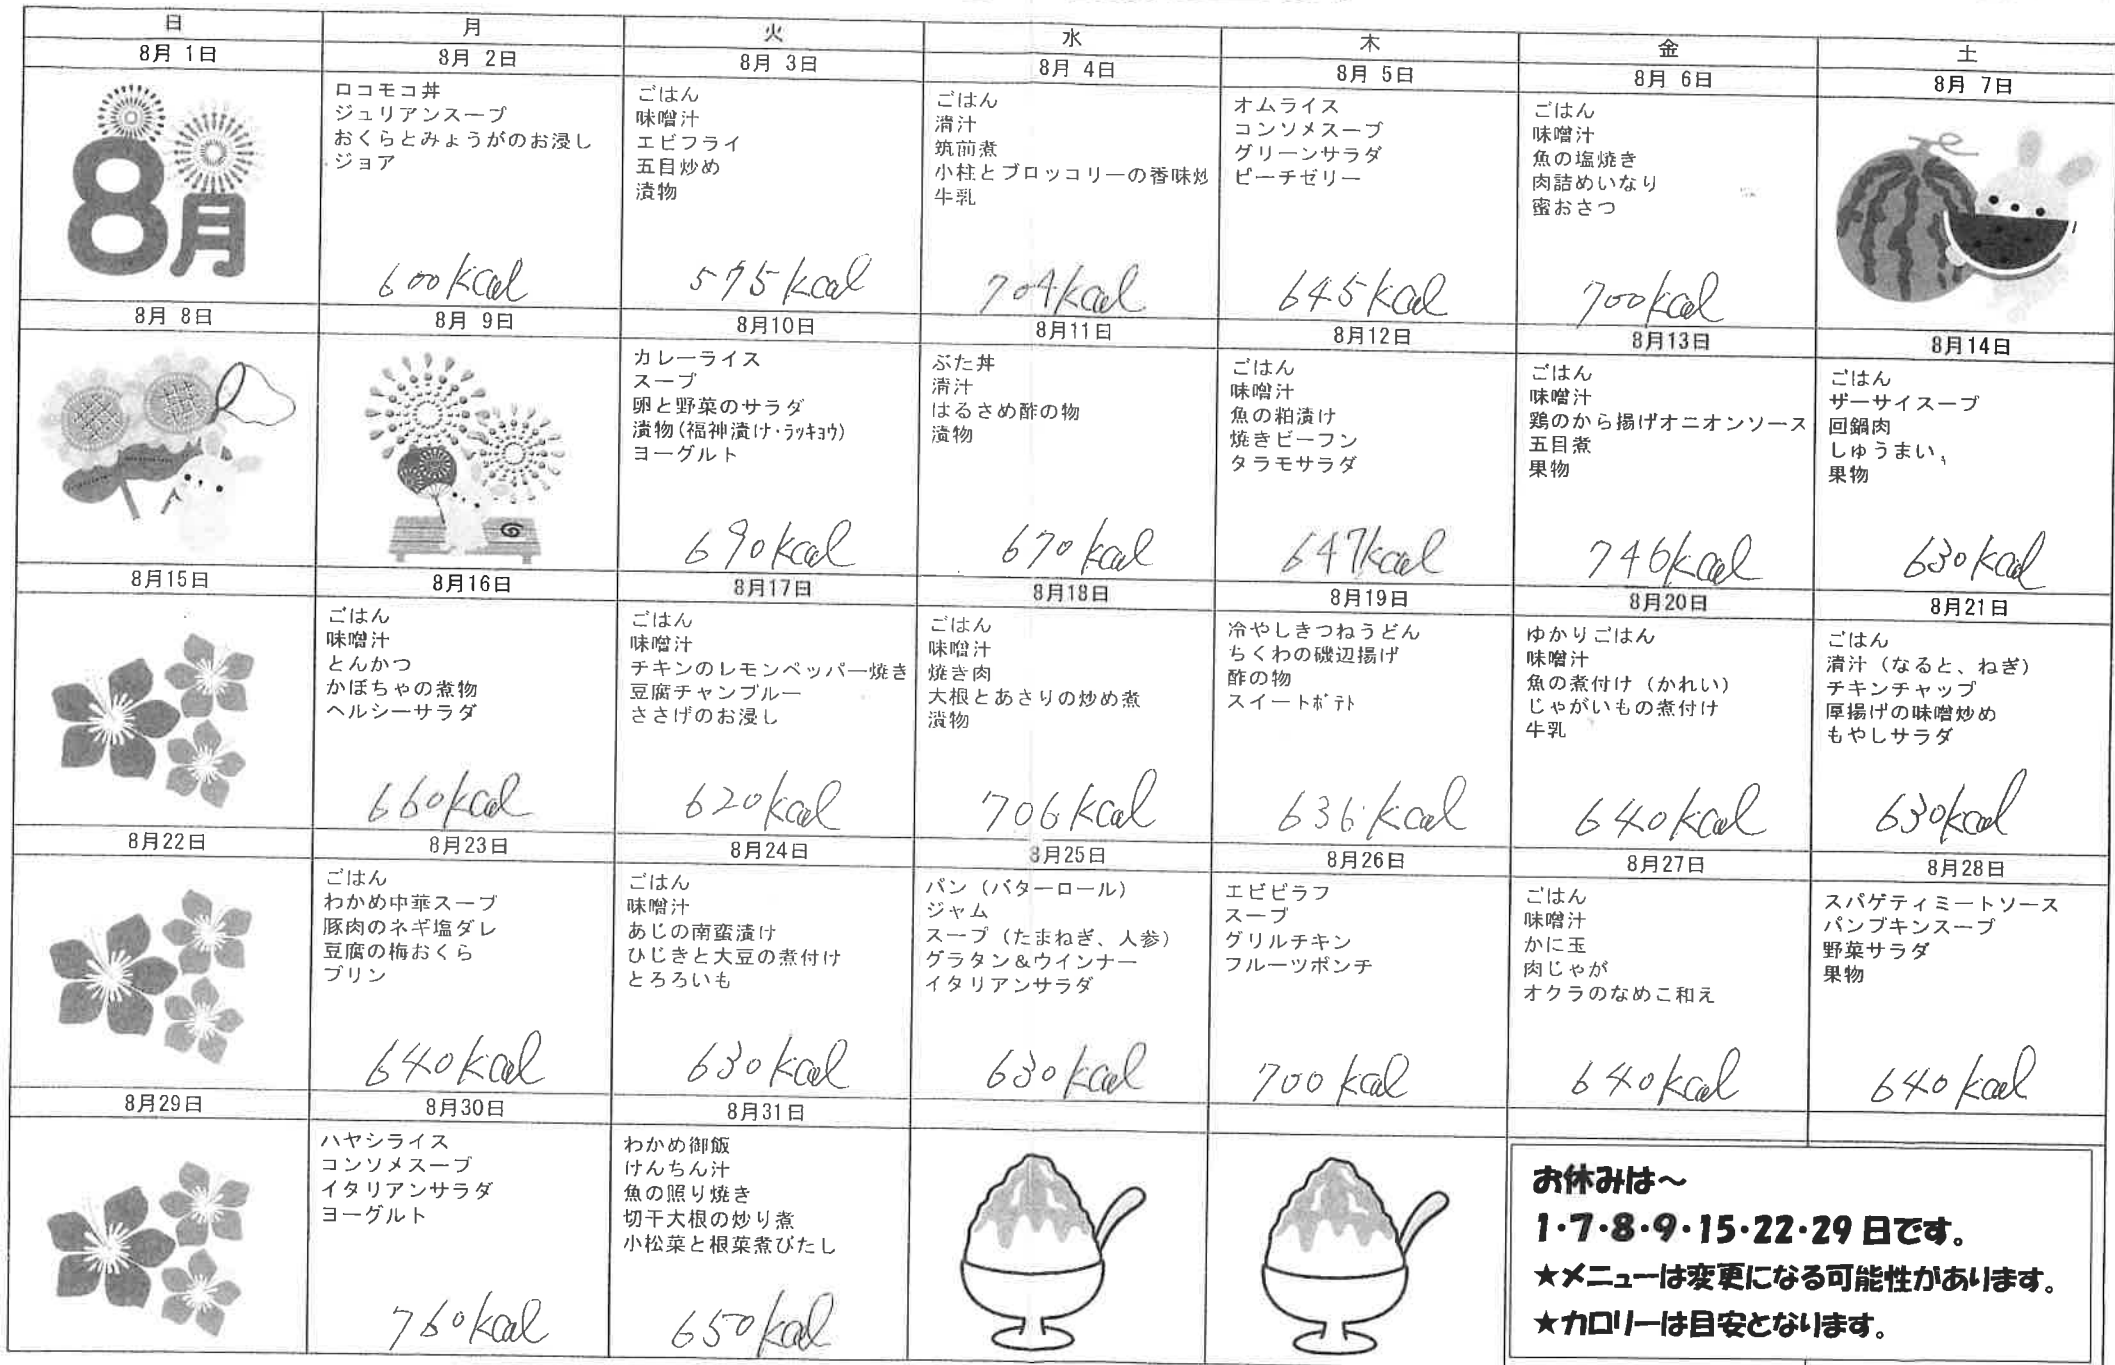 日
月
火
水
木
金
土
8月 1日
8月 2日
8月 3日
8月 4日
8月 5日
8月 6日
8月 7日
8月
ロコモコ丼
ジュリアンスープ
おくらとみょうがのお浸し
ジョア
600kcal
ごはん
味噌汁
エビフライ
五目炒め
漬物
575kcal
ごはん
清汁
筑前煮
小柱とブロッコリーの香味炒
牛乳
704kcal
オムライス
コンソメスープ
グリーンサラダ
ピーチゼリー
645kcal
ごはん
味噌汁
魚の塩焼き
肉詰めいなり
蜜おさつ
700kcal
8月 8日
8月 9日
8月10日
8月11日
8月12日
8月13日
8月14日
カレーライス
スープ
卵と野菜のサラダ
漬物(福神漬け・ラッキョウ)
ヨーグルト
690kcal
ぶた丼
清汁
はるさめ酢の物
漬物
670kcal
ごはん
味噌汁
魚の粕漬け
焼きビーフン
タラモサラダ
647kcal
ごはん
味噌汁
鶏のから揚げオニオンソース
五目煮
果物
746kcal
ごはん
ザーサイスープ
回鍋肉
しゅうまい
果物
630kcal
8月15日
8月16日
8月17日
8月18日
8月19日
8月20日
8月21日
ごはん
味噌汁
とんかつ
かぼちゃの煮物
ヘルシーサラダ
660kcal
ごはん
味噌汁
チキンのレモンペッパー焼き
豆腐チャンプルー
ささげのお浸し
620kcal
ごはん
味噌汁
焼き肉
大根とあさりの炒め煮
漬物
706kcal
冷やしきつねうどん
ちくわの磯辺揚げ
酢の物
スイートポテト
636kcal
ゆかりごはん
味噌汁
魚の煮付け（かれい）
じゃがいもの煮付け
牛乳
640kcal
ごはん
清汁（なると、ねぎ）
チキンチャップ
厚揚げの味噌炒め
もやしサラダ
630kcal
8月22日
8月23日
8月24日
8月25日
8月26日
8月27日
8月28日
ごはん
わかめ中華スープ
豚肉のネギ塩ダレ
豆腐の梅おくら
プリン
640kcal
ごはん
味噌汁
あじの南蛮漬け
ひじきと大豆の煮付け
とろろいも
630kcal
パン（バターロール）
ジャム
スープ（たまねぎ、人参）
グラタン＆ウインナー
イタリアンサラダ
630kcal
エビピラフ
スープ
グリルチキン
フルーツポンチ
700kcal
ごはん
味噌汁
かに玉
肉じゃが
オクラのなめこ和え
640kcal
スパゲティミートソース
パンプキンスープ
野菜サラダ
果物
640kcal
8月29日
8月30日
8月31日
ハヤシライス
コンソメスープ
イタリアンサラダ
ヨーグルト
760kcal
わかめ御飯
けんちん汁
魚の照り焼き
切干大根の炒り煮
小松菜と根菜煮びたし
650kcal
お休みは～
1・7・8・9・15・22・29 日です。
★メニューは変更になる可能性があります。
★カロリーは目安となります。